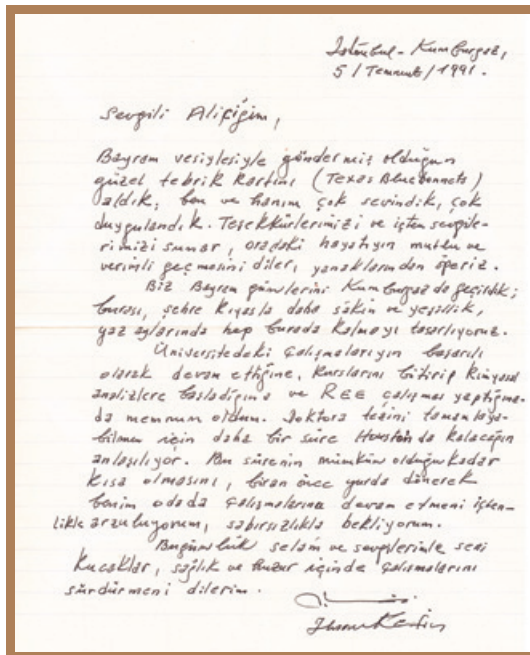 İstanbul - Kumburgaz,
5 / Temmuz / 1991.
Sevgili Alifiğim,
Bayram vesiylesiyle göndermiş olduğun
güzel tebrik kartını (Texas Bluebonnets)
aldık; ben ve hanım çok sevindik, çok
duygulandık. Teşekkürlerimizi ve içten sevgile-
rimizi sunar, oradaki hayatıyın mutlu ve
verimli geçmesini diler, yanaklarından öperiz.
Biz Bayram günlerini Kumburgaz'da geçirdik;
burası, şehre kıyasla daha sâkin ve yeşillik,
yaz aylarında hep burada kalmayı tasarlıyoruz.
Üniversitedeki çalışmalarıyın başarılı
olarak devam ettiğine, kurslarını bitirip kimyasal
analizlere başladığına ve REE çalışması yaptığına
da memnun oldum. Doktora tezini tamamlaya-
bilmen için daha bir süre Houston'da kalacağın
anlaşılıyor. Bu sürenin mümkün olduğu kadar
kısa olmasını, biran önce yurda dönerek
benim odada çalışmalarına devam etmeni içten-
likle arzuluyorum, sabırsızlıkla bekliyorum.
Bugünlük selam ve sevgilerimle seni
kucaklar, sağlık ve huzur içinde çalışmalarını
sürdürmeni dilerim.